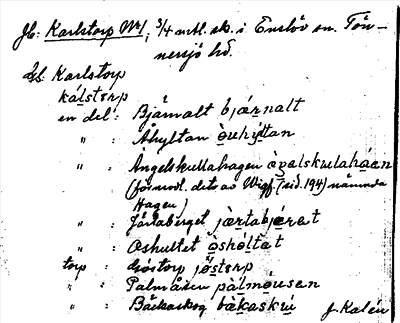 Jb: Karlstorp No 1, 3/4 mtl. sk. i Enslöv sn. Tön-
nersjö hd.
Gd. Karlstorp
kálstèrp
en del: Bjärnalt bjæ̀rnalt
" : Åhyltan òuhýltan
" : Ängelskullahagen
(förmodl. det av Wigf. (sid. 194) nämnda
Hagen)
" : Järtaberget jærtabjærat
" : Oshultet òshóltat
torp : Göstorp jö̀sterp
" : Palmåsen pálmòusen
" : Bäckaskog bàkaskú J. Kalén